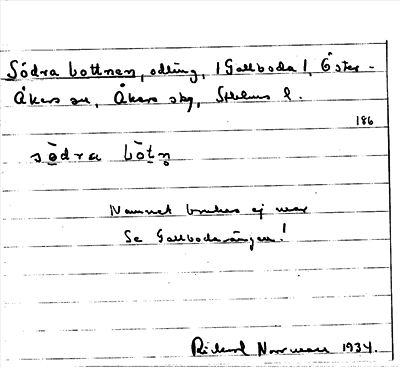 Södra bottnen, odling, (Gallboda), Öster-
Åkers sn, Åkers skg, Sthlms l.
186
sö̀dra bòtn̥
Namnet brukas ej mer
Se Gallbodaängen!
Rickard Norrman 1934.